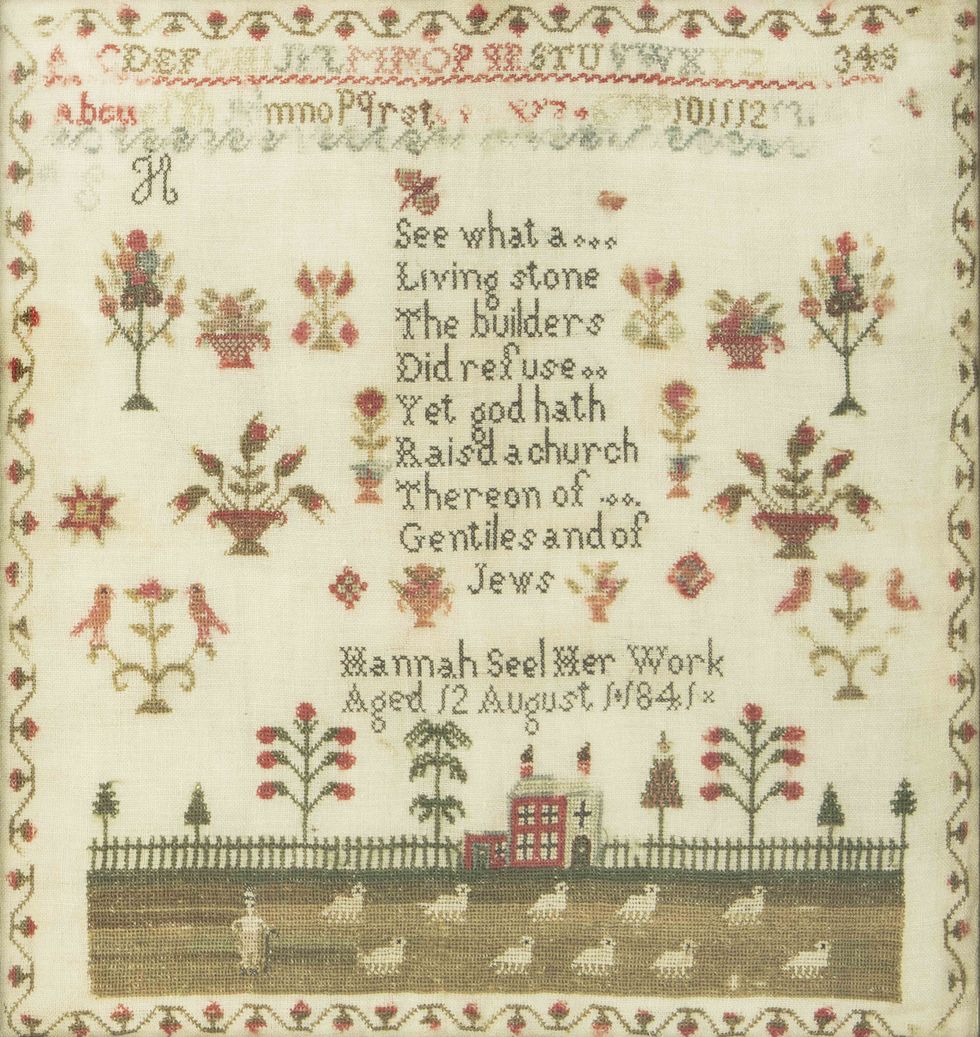 A CDEF JKLMNOP QRSTUVWX YZ 345
abcd mnopqrst 101112
H
See what a...
Living stone
The builders
Did refuse..
Yet god hath
Raisd a church
Thereon of ...
Gentiles and of
Jews
Hannah Seel Her Work
Aged 12 August 1 1841